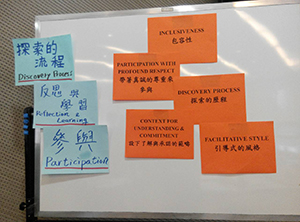 探索的
流程
Discovery Process
反思與
學習
Reflection &
Learning
參與
Participation
INCLUSIVENESS
包容性
PARTICIPATION WITH
PROFOUND RESPECT
帶著真誠的尊重來
參與
DISCOVERY PROCESS
探索的歷程
CONTEXT FOR
UNDERSTANDING &
COMMITMENT
設下了解與承諾的範疇
FACILITATIVE STYLE
引導式的風格